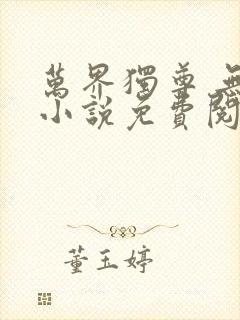 萬界獨尊
小說免費閱
董玉婷